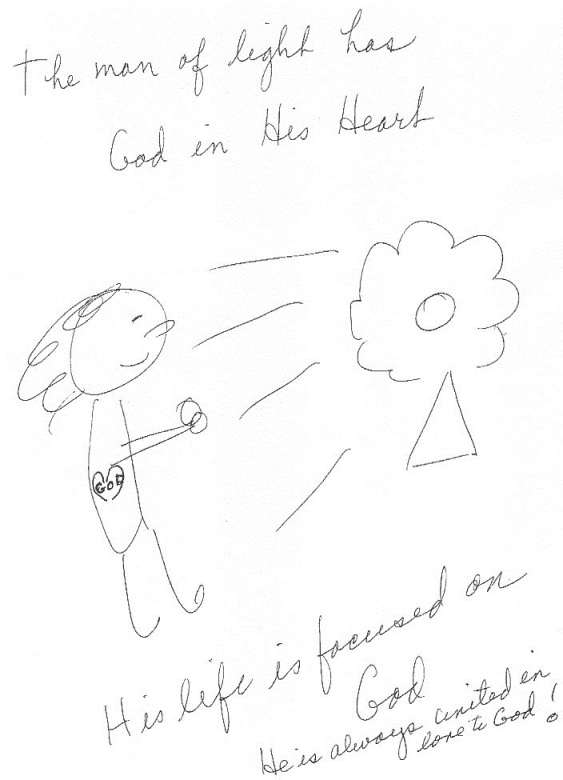 The man of light has
God in His Heart
GOD
His life is focused on
God
He is always united in
love to God!